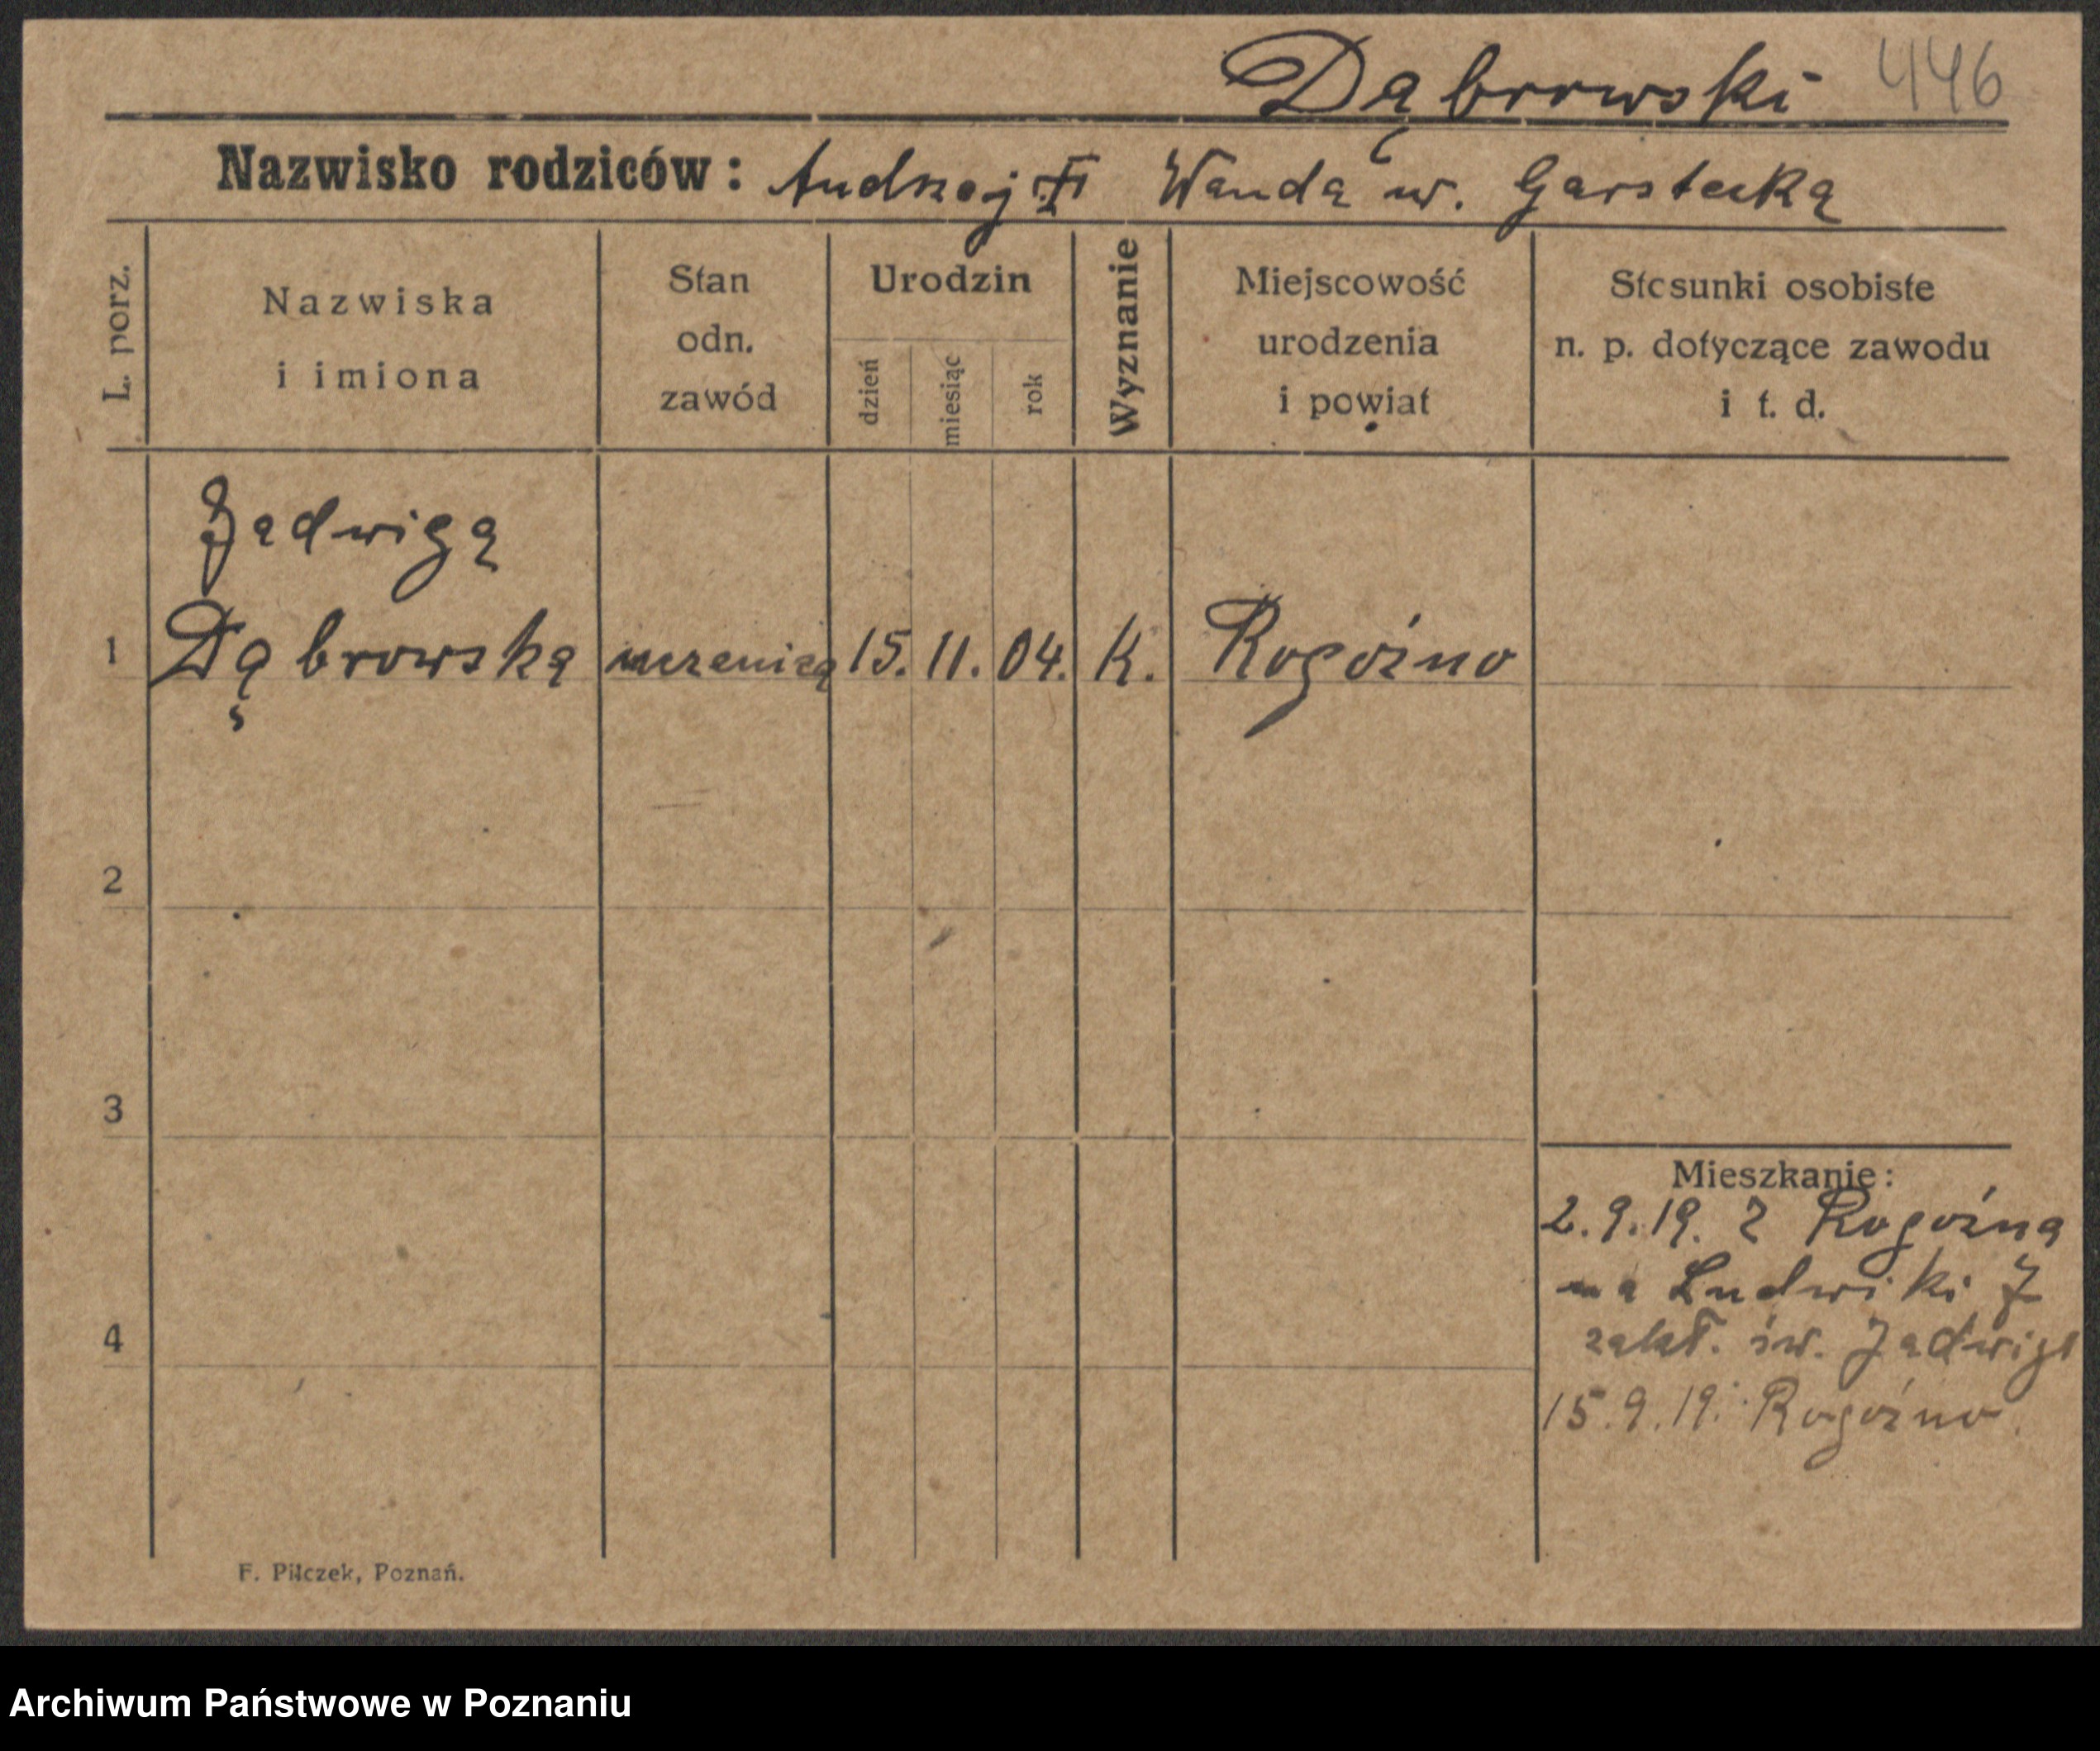 Dąbrowski 446
Nazwisko rodziców: Andrzej Wanda ur. Garstecka
L. porz.
Nazwiska
i imiona
Stan
odn.
zawód
Urodzin
dzień
miesiąc
rok
Wyznanie
Miejscowość
urodzenia
i powiat
Stosunki osobiste
n. p. dotyczące zawodu
i t. d.
Jadwiga
1 Dąbrowska uczenica 15. 11. 04. K. Rogoźno
2
3
4
Mieszkanie:
2.9.19. z Rogoźna
na Ludwiki
zakł. św. Jadwigi
15.9.19. Rogoźno
F. Pilczek, Poznań.
Archiwum Państwowe w Poznaniu